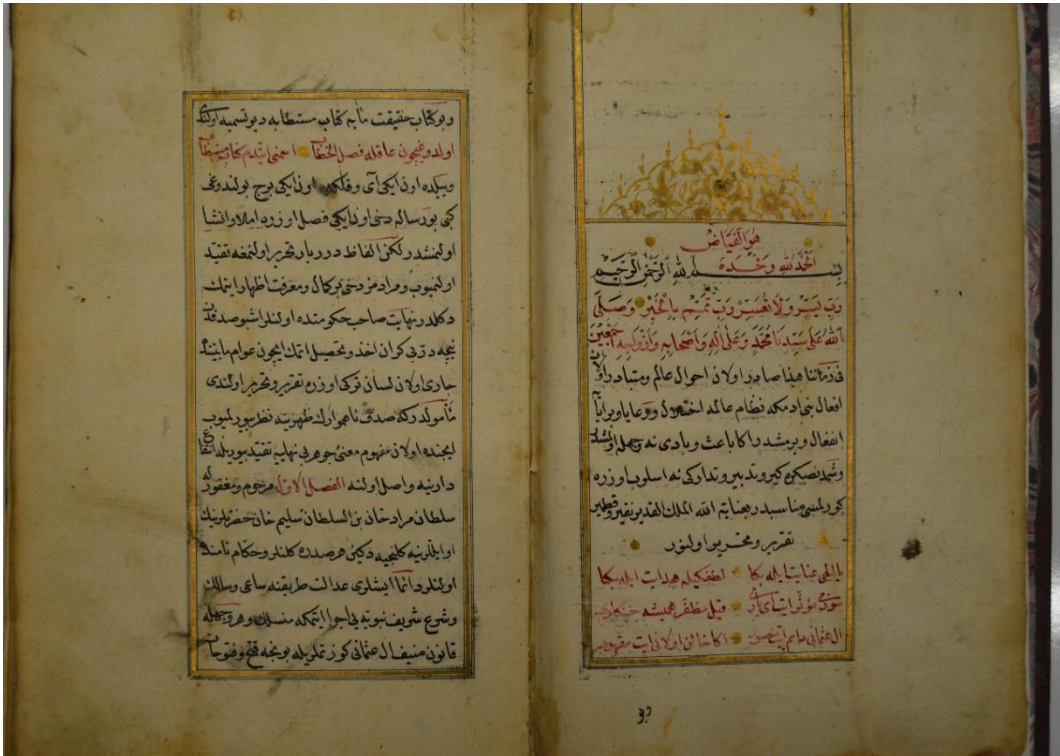 هو الفياض
الحمد لله وحده
بسم الله الرحمن الرحيم
رب يسر ولا تعسر رب تمم بالخير وصلى
الله على سيدنا محمد وعلى آله واصحابه وازواجه اجمعين
فى زماننا هذا صادر اولان احوال عالم ومتبادر اولان
افعال بنى ادمكه نظام عالمه اختلال ورعايا وبرايايه
انفعال ويرمشدر اكا باعث وبادى نه وجهله اولمشدر
وشمدنصكره كيرو تدبير وتداركى نه اسلوب اوزره
كورلمسى مناسبدر بعناية الله الملك القدير نقير وقطمير
تقرير وتحرير اولنور
يا الهى عنايت ايله بكا لطفكيله هدايت ايله بكا
سوزمى مؤثر ايت اى بارى قيل مظفر هميشه خنكارى
ال عثمانى دايم ايت منصور اكا خائن اولانى ايت مقهور
وبو كتاب حقيقت مآبه كتاب مستطاب ديو تسميه اولندى
اولدوغيچون عاقله فصل الخطاب اسمنى ايتدم كتاب مستطاب
وييلده اون ايكى آى وفلكده اون ايكى برج بولندوغى
كبى بو رساله دخى اون ايكى فصل اوزره املا وانشا
اولنمشدر لكن الفاظ درربار تحرير اولنمغه تقيد
اولنميوب ومرادمز دخى بر كمال ومعرفت اظهار ايتمك
دكلدر نهايت صاحب حكومتده اولنلر اشبو صدفدن
نيجه در بى كران اخذ وتحصيل اتمك ايچون عوام مابيننده
جارى اولان لسان تركى اوزره تقرير وتحرير اولندى
مأمولدركه صدف ناهموارك ظهرينه نظر بيورلميوب
ايچنده اولان مفهوم معنئ جوهر بى نهايه تقيد بيوريله انتفاع
دارينه واصل اولنه الفصل الاول مرحوم ومغفور له
سلطان مراد خان بن السلطان سليم خان حضرتلرينك
اوائللرينه كلنجيه دكين هر صدده كلنلر وحكام نامنده
اولنلر دائما ايشلرى عدالت طريقنه ساعى وسالك
وشرع شريف نبويه يى اجرا اتمكه منسلك وهر وجهله
قانون منيف ال عثمانى كوزتملريله بو نجه فتح وفتوحات